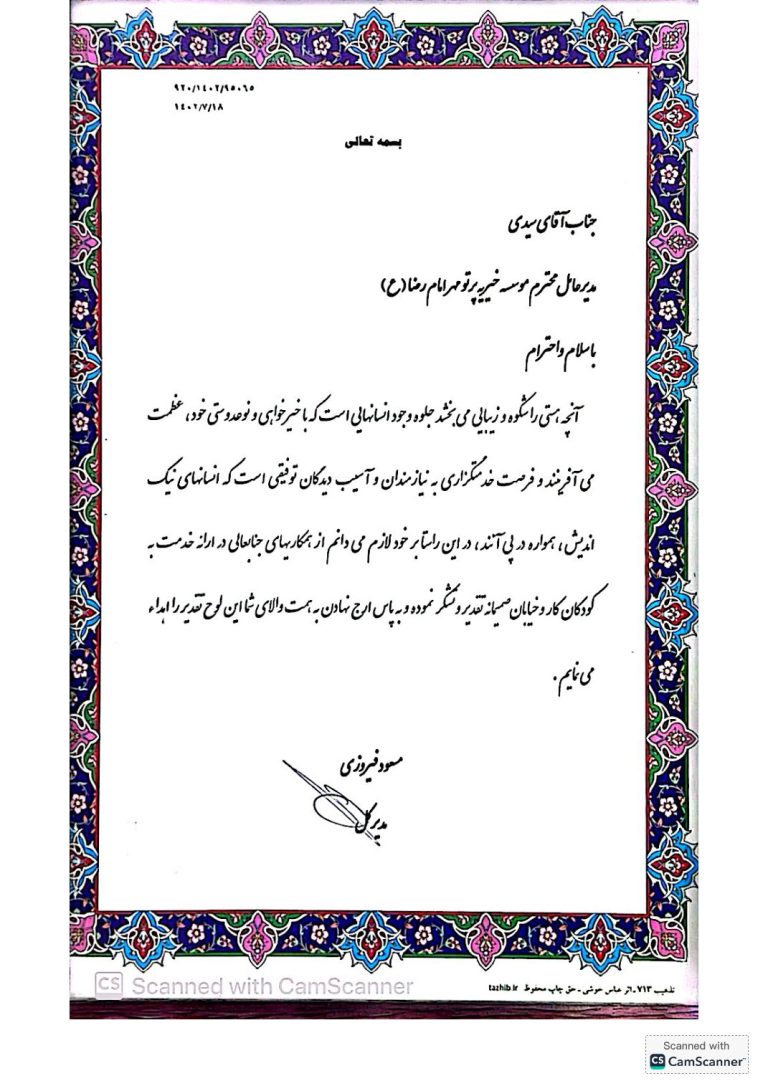 ۹۲۰/۱۴۰۲/۹۵۰۶۵
۱۴۰۲/۷/۱۸
بسمه تعالی
جناب آقای سیدی
مدیرعامل محترم موسسه خیریه پرتو مهر امام رضا (ع)
با سلام و احترام
آنچه هستی را شکوه و زیبایی می بخشد جلوه وجود انسانهایی است که با خیرخواهی و نوعدوستی خود، عظمت
می آفرینند و فرصت خدمتگزاری به نیازمندان و آسیب دیدگان توفیقی است که انسانهای نیک
اندیش، همواره در پی آنند، در این راستا بر خود لازم می دانم از همکاریهای جنابعالی در ارائه خدمت به
کودکان کار و خیابان صمیمانه تقدیر و تشکر نموده و به پاس ارج نهادن به همت والای شما این لوح تقدیر را اهداء
می نمایم.
مسعود فیروزی
مدیر کل
تذهیب ۷۱۳ - اثر عباس خوشی - حق چاپ محفوظ tazhib.ir
CS Scanned with CamScanner
Scanned with
CS CamScanner